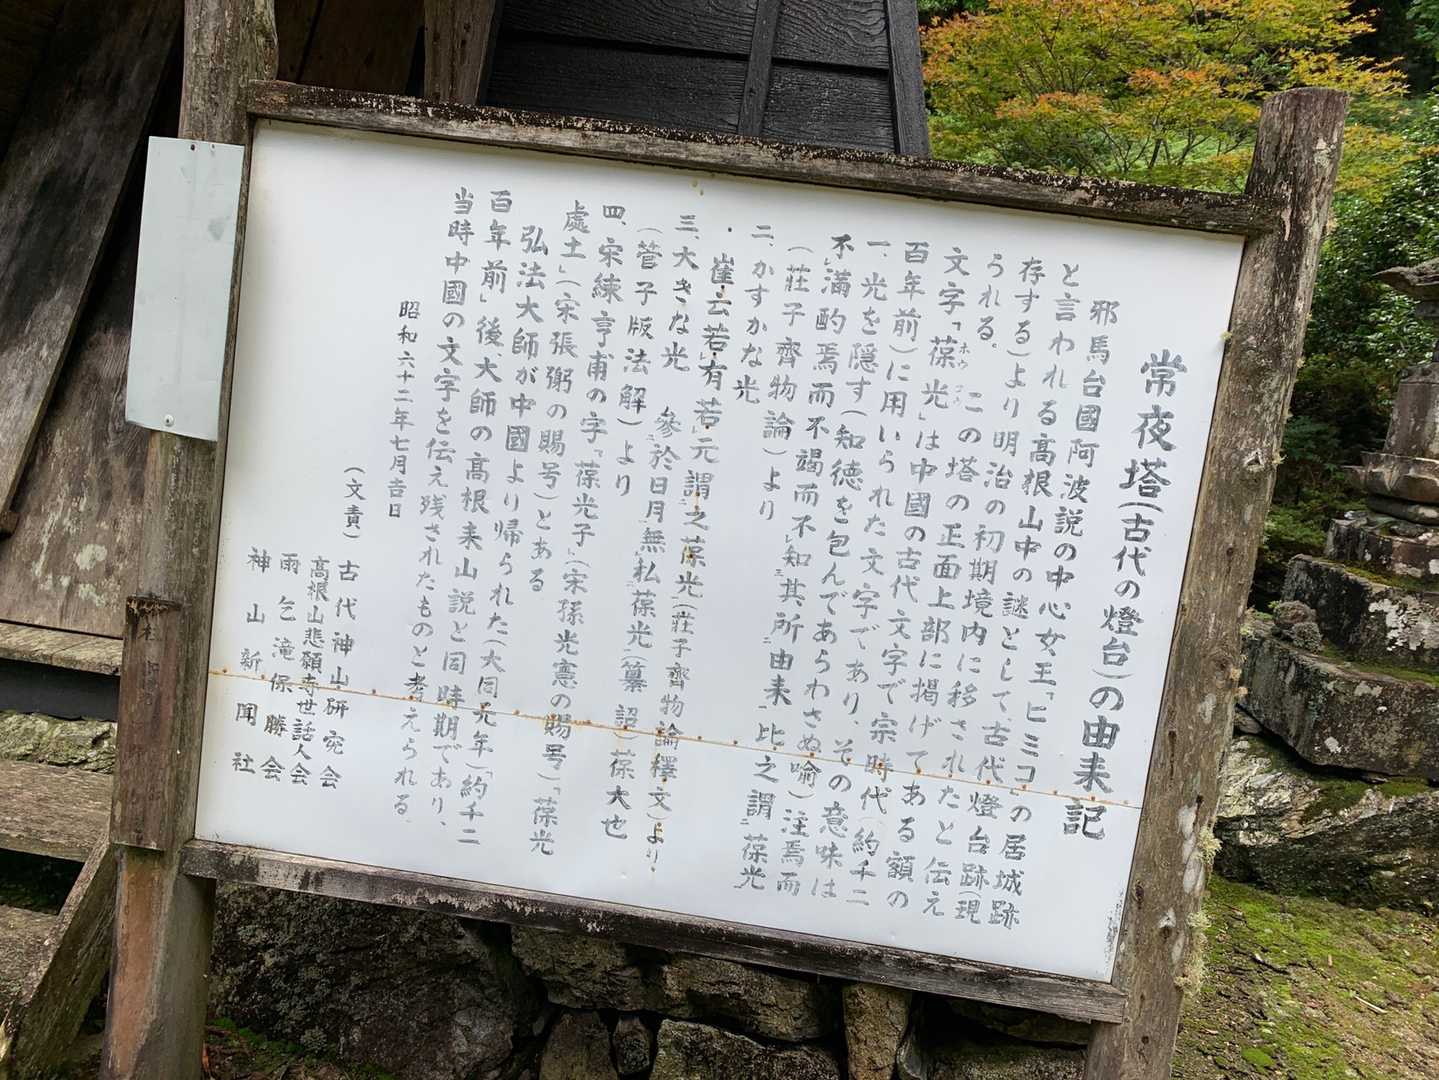 常夜塔(古代の燈台)の由来記
邪馬台國阿波説の中心女王「ヒミコ」の居城跡
と言われる高根山中の謎として、古代燈台跡(現
存する)より明治の初期境内に移されたと伝え
られる。この塔の正面上部に掲げてある額の
文字「葆光」は中國の古代文字で宗時代(約千二
ホウ
百年前)に用いられた文字であり、その意味は
一、光を隠す(知徳を包んであらわさぬ喩)注焉而
不満酌焉而不竭而不知其所由来比之謂葆光
(莊子齊物論)より
二、かすかな光
・崔云若有若元謂之葆光(莊子齊物論釋文)より
三、大きな光 參於日月無私葆光(纂詔)葆大也
(菅子版法解)より
四、宋練亨甫の字「葆光子」(宋孫光憲の賜号)「葆光
處士」(宋張弼の賜号)とある
弘法大師が中國より帰られた(大同元年)「約千二
百年前」後、大師の高根来山説と同時期であり、
当時中國の文字を伝え残されたものと考えられる
昭和六十二年七月吉日
(文責)古代神山研究会
高根山悲願寺世話人会
雨乞滝保勝会
神山新聞社